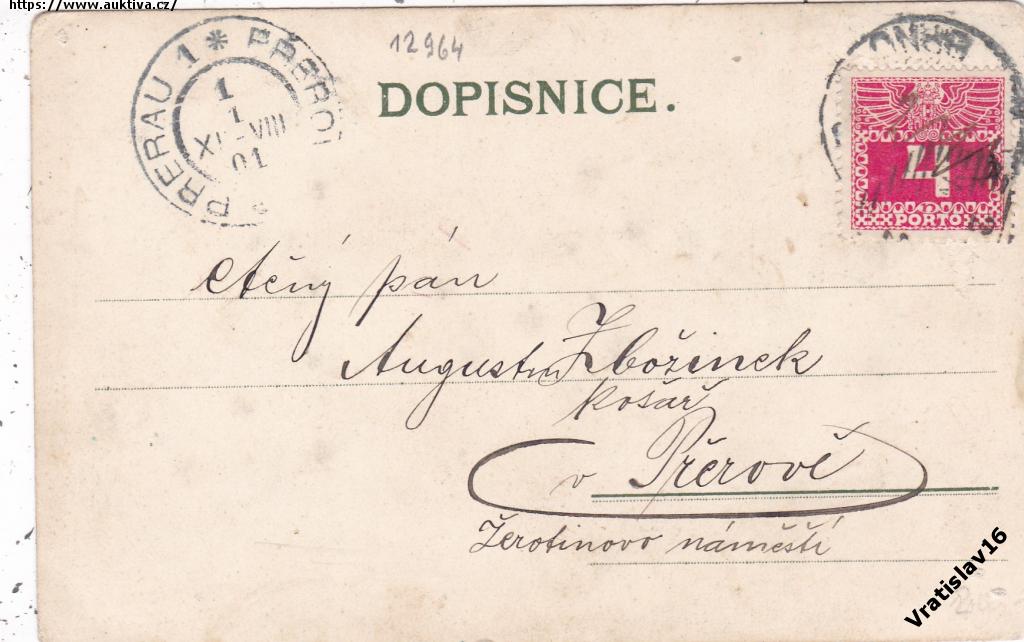 https://www.auktiva.cz/
12964
PRERAU 1 * PŘEROV
1
1
XI-VIII
01
DOPISNICE.
BRNO
4
PORTO
Ctěný pán
Augustin Zbožínek
košař
v Přerově
Žerotínovo náměstí
Vratislav16